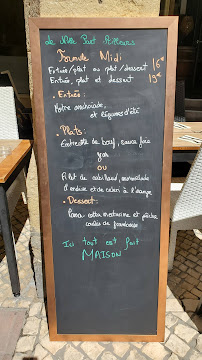 Le Nez Part Ailleurs
Formule Midi
Entrée/plat ou plat/dessert 16€
Entrée, plat et dessert 19€
- Entrée:
Notre anchoïade,
et légumes d'été
- Plats:
Entrecôte de bœuf, sauce foie
gras
OU
Filet de cabillaud, marmelade
d'endive et de céleri à l'orange
- Dessert:
Panna cotta maturine et pêche
coulis de framboise
Ici tout est fait
MAISON